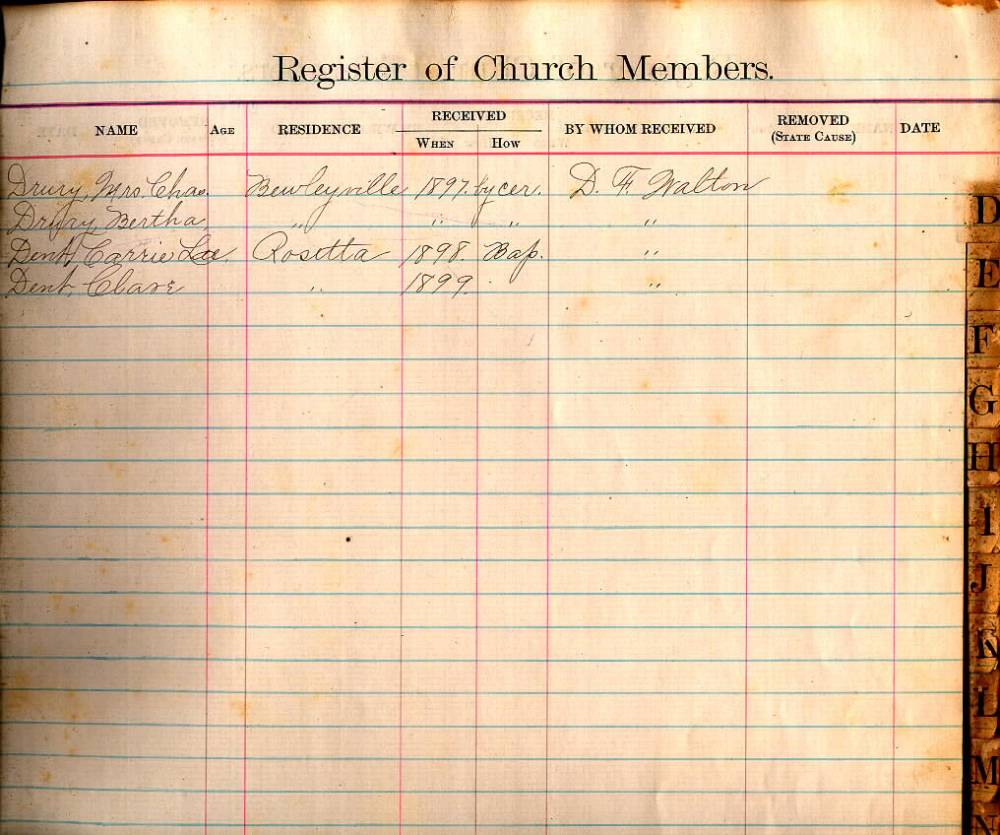 Register of Church Members.
NAME AGE RESIDENCE RECEIVED BY WHOM RECEIVED REMOVED DATE
WHEN HOW (STATE CAUSE)
Drury, Mrs. Chas. Bewleyville 1897. by cer. D. F. Walton
Drury, Bertha, " " " "
Dent, Carrie Lee. Rosetta 1898. Bap. "
Dent, Clare " 1899. "
D
E
F
G
H
I
J
K
L
M
N